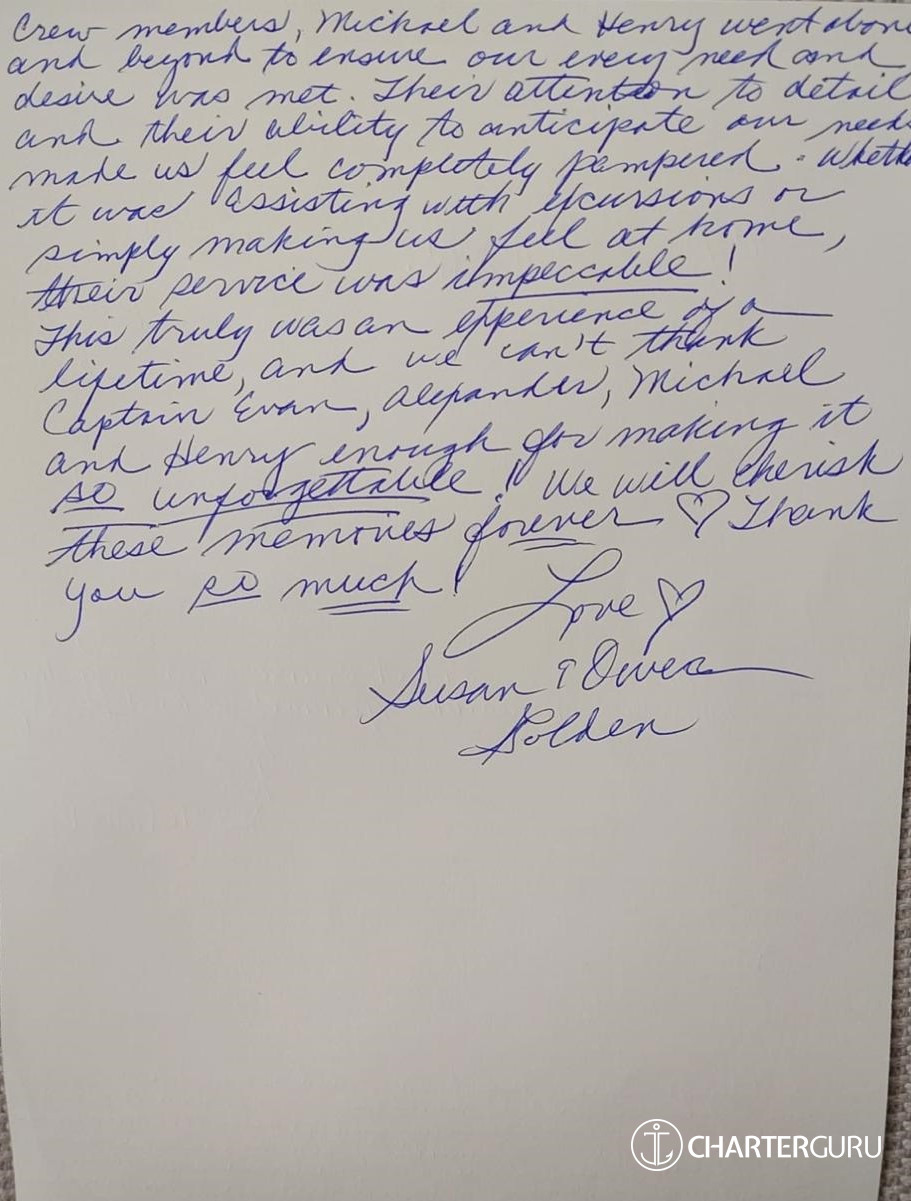 Crew members, Michael and Henry went above
and beyond to ensure our every need and
desire was met. Their attention to detail
and their ability to anticipate our needs
made us feel completely pampered. Whethe
it was assisting with excursions or
simply making us feel at home,
their service was impeccable!
This truly was an experience of a
lifetime, and we can't thank
Captain Evan, Alexander, Michael
and Henry enough for making it
so unforgettable! We will cherish
these memories forever ♡ Thank
you so much!
Love ♡
Susan & Owen
Golden
CHARTERGURU